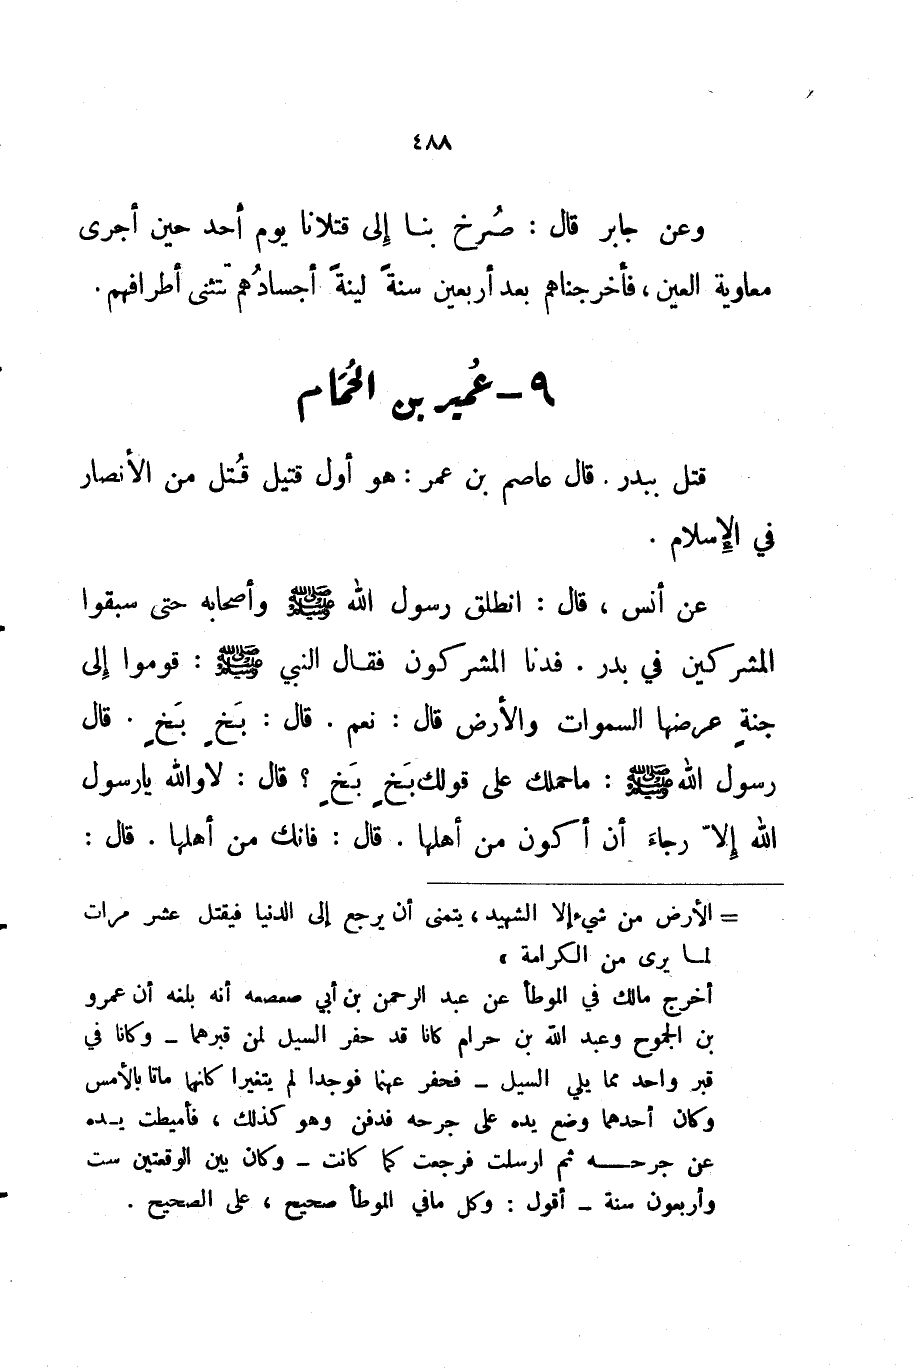 ٤٨٨
وعن جابر قال : صُرخ بنا إلى قتلانا يوم أُحد حين أجرى
معاوية العين ، فأخرجناهم بعد أربعين سنةً لينةً أجسادُهم تتثنى أطرافهم .
٩ – عُمير بن الحُمَام
قتل ببدر . قال عاصم بن عمر : هو أول قتيل قُتل من الأنصار
في الإسلام .
عن أنس ، قال : انطلق رسول الله ﷺ وأصحابه حتى سبقوا
المشركين في بدر . فدنا المشركون فقال النبي ﷺ : قوموا إلى
جنةٍ عرضها السموات والأرض قال : نعم . قال : بَخٍ بَخٍ . قال
رسول الله ﷺ : ماحملك على قولك بَخٍ بَخٍ ؟ قال : لاوالله يارسول
الله إلاّ رجاءَ أن أكون من أهلها . قال : فانك من أهلها . قال :
= الأرض من شيء إلا الشهيد ، يتمنى أن يرجع إلى الدنيا فيقتل عشر مرات
لما يرى من الكرامة »
أخرج مالك في الموطأ عن عبد الرحمن بن أبي صعصعه أنه بلغه أن عمرو
بن الجموح وعبد الله بن حرام كانا قد حفر السيل لمن قبرهما – وكانا في
قبر واحد مما يلي السيل – فحفر عنهما فوجدا لم يتغيرا كانها ماتا بالأمس
وكان أحدهما وضع يده على جرحه فدفن وهو كذلك ، فأميطت يده
عن جرحه ثم ارسلت فرجعت كما كانت – وكان بين الوقعتين ست
وأربعون سنة – أقول : وكل مافي الموطأ صحيح ، على الصحيح .